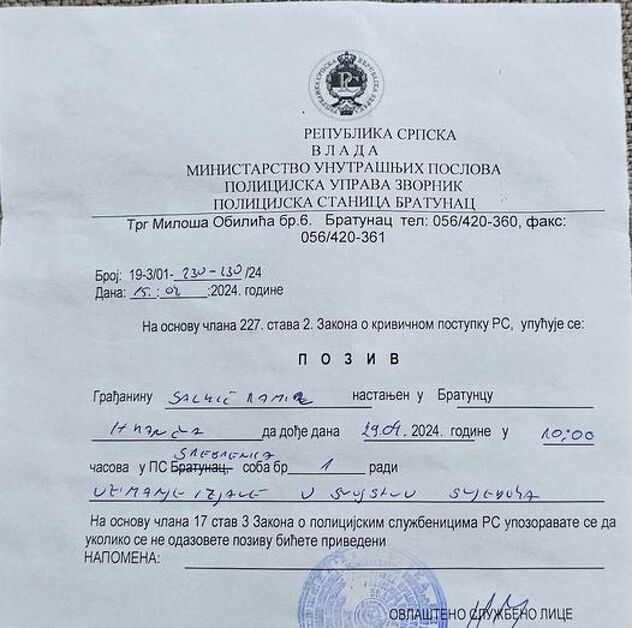 РЕПУБЛИКА СРПСКА
В Л А Д А
МИНИСТАРСТВО УНУТРАШЊИХ ПОСЛОВА
ПОЛИЦИЈСКА УПРАВА ЗВОРНИК
ПОЛИЦИЈСКА СТАНИЦА БРАТУНАЦ
Трг Милоша Обилића бр.6. Братунац тел: 056/420-360, факс:
056/420-361
Број: 19-3/01-230-130/24
Дана: 15.:02:2024. године
На основу члана 227. става 2. Закона о кривичном поступку РС, упућује се:
П О З И В
Грађанину SALKIĆ RAMIZ настањен у Братунцу
да дође дана 29.04.2024. године у 10:00
SREBRENICA
часова у ПС Братунац, соба бр 1 ради
UZIMANJE IZJAVE U SVOJSTVU SVJEDOKA
На основу члана 17 став 3 Закона о полицијским службеницима РС упозоравате се да
уколико се не одазовете позиву бићете приведени
НАПОМЕНА:
ОВЛАШТЕНО СЛУЖБЕНО ЛИЦЕ